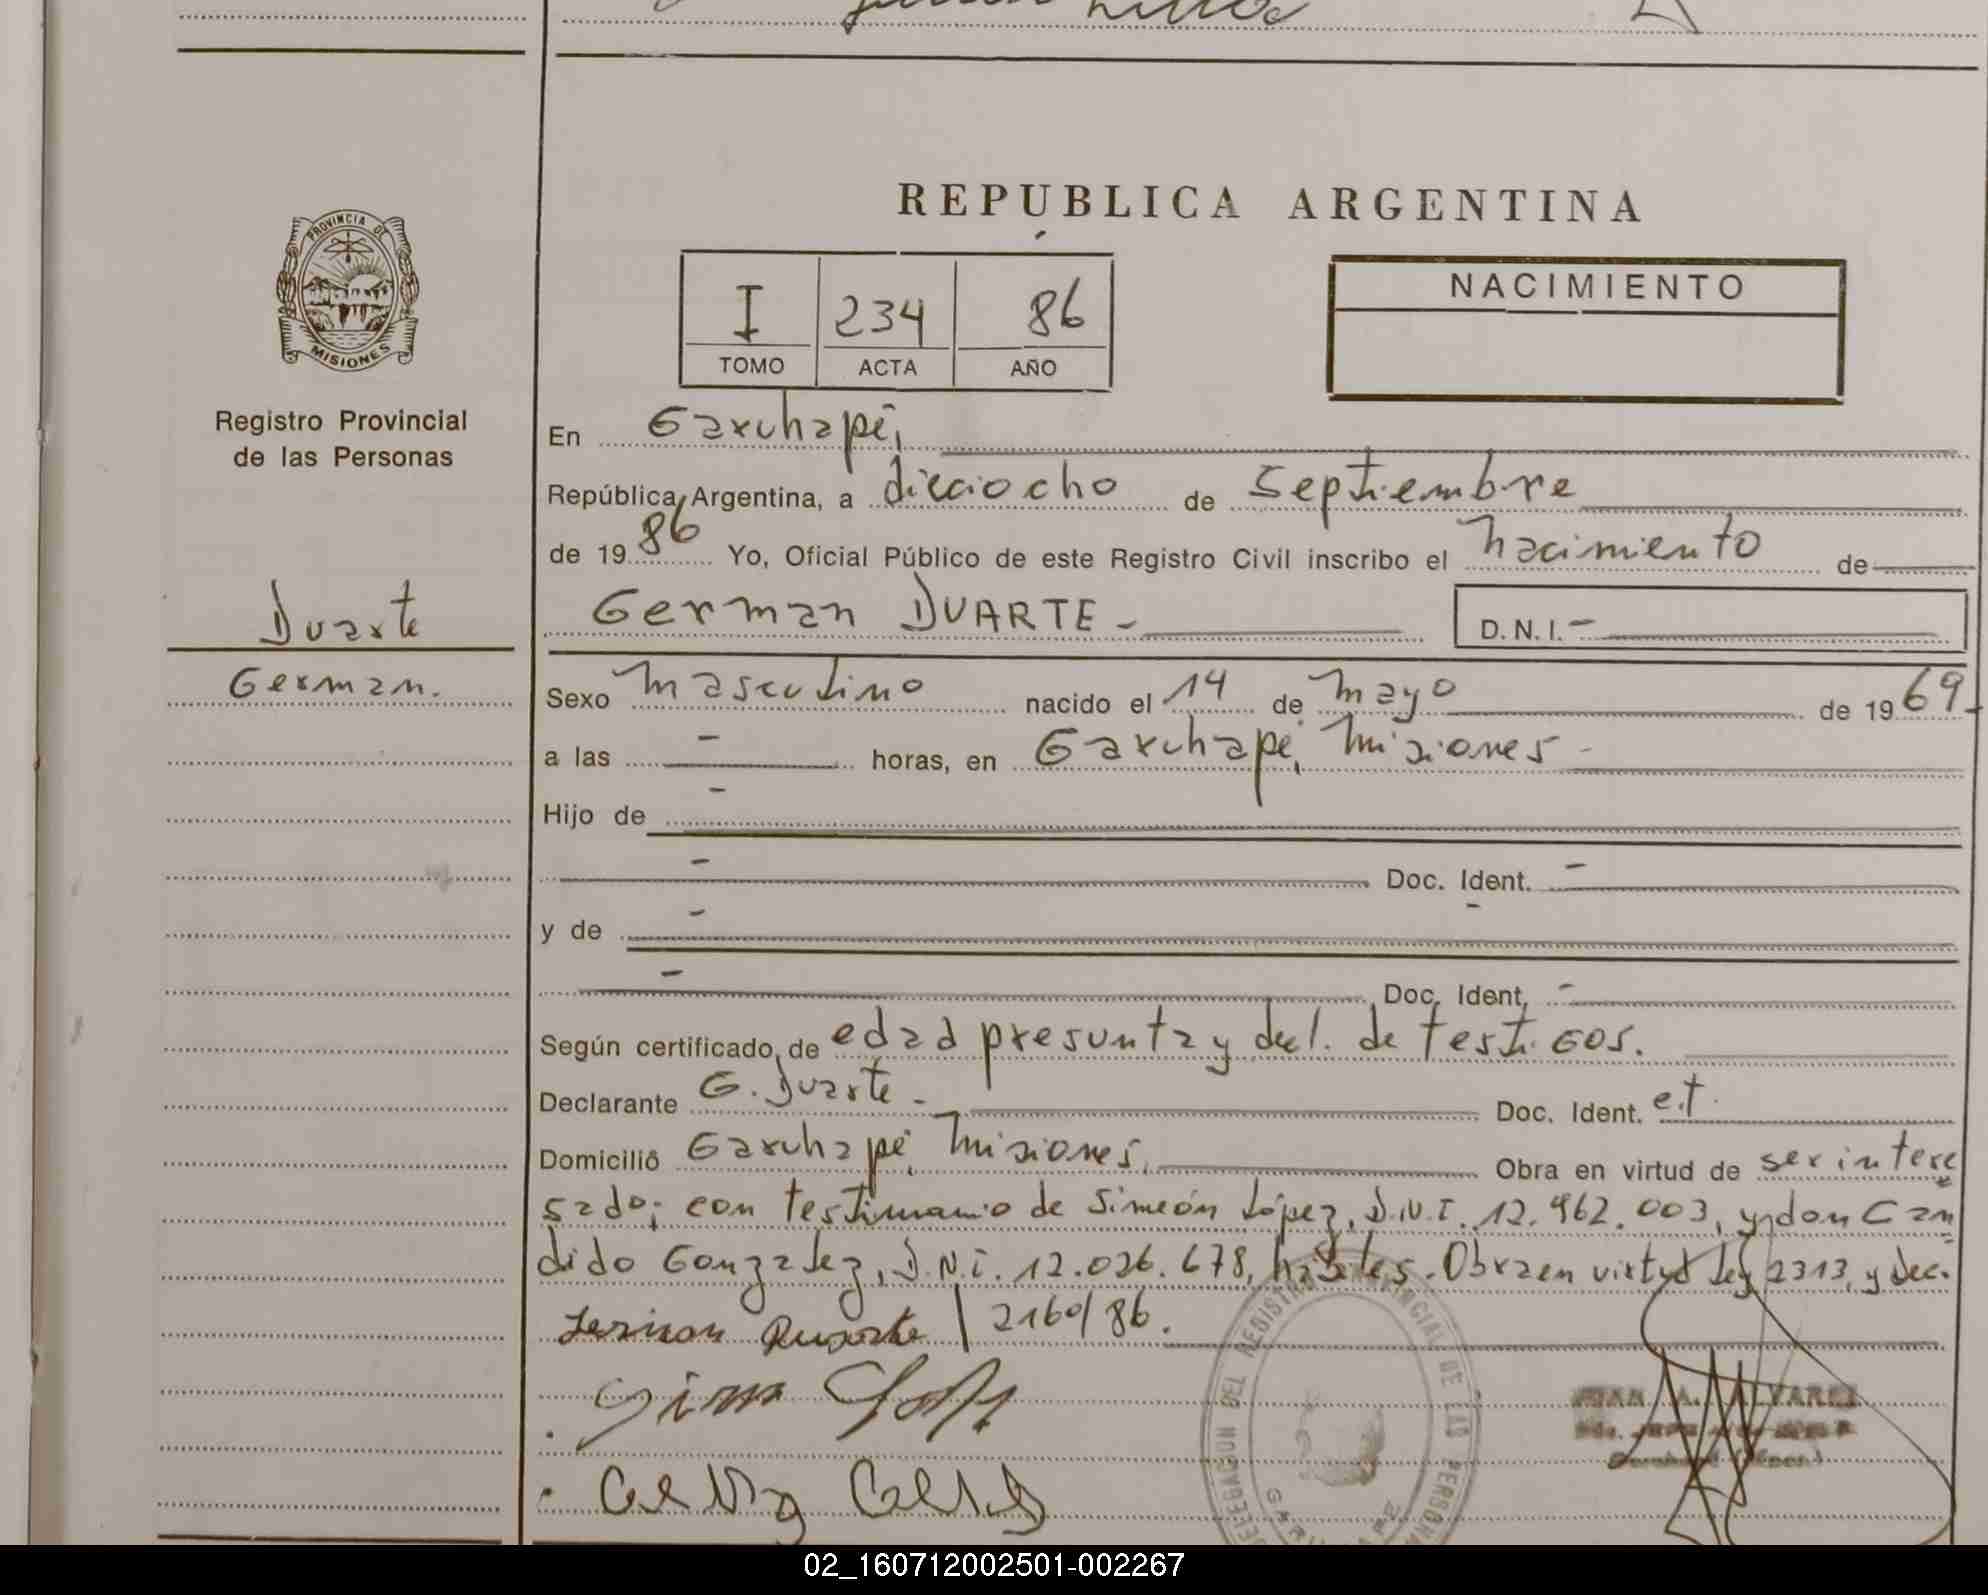 REPUBLICA ARGENTINA
PROVINCIA DE
MISIONES
Registro Provincial
de las Personas
I 234 86
TOMO ACTA AÑO
NACIMIENTO
En Garuhapé,
República Argentina, a dieciocho de septiembre
de 1986 Yo, Oficial Público de este Registro Civil inscribo el nacimiento de
German DUARTE - D.N.I. -
Duarte
German.
Sexo masculino nacido el 14 de mayo de 1969-
a las - horas, en Garuhapé, Misiones -
Hijo de -
- Doc. Ident. -
y de -
- Doc. Ident. -
Según certificado de edad presunta y decl. de testigos.
Declarante G. Duarte - Doc. Ident. e.t.
Domicilio Garuhapé, Misiones, Obra en virtud de ser intere
sado; con testimonio de Simeón López, D.N.I. 12.962.003, y don Can
dido Gonzalez, D.N.I. 12.026.678, hábiles. Obra en virtud ley 2313, y dec.
German Duarte / 2160/86.
DELEGACION DEL REGISTRO PROVINCIAL DE LAS PERSONAS
JUAN A. ALVAREZ
02_160712002501-002267